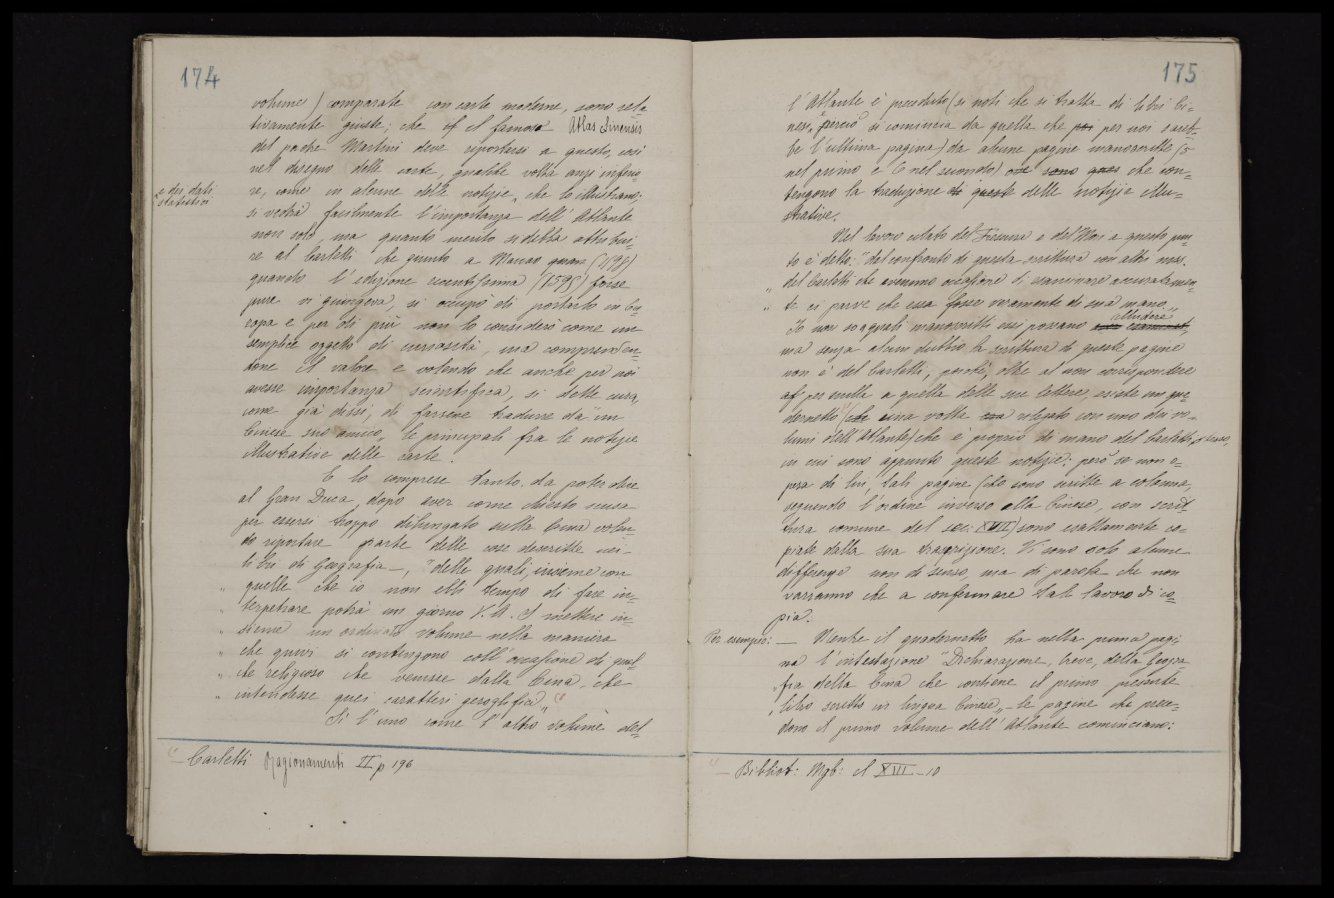 174
volume) comparate con carte moderne, sono rela=
tivamente giuste; che se il famoso Atlas Sinensis
del padre Martini deve riportarsi a questo, così
nel disegno delle carte, qualche volta anzi inferio=
re, come in alcune delle notizie, che lo illustrano;
e dei dati
statistici
si vedrà facilmente l'importanza dell'Atlante
non solo, ma quanto merito si debba attribui=
re al Carletti che giunto a Macao quan (1598)
quando l'edizione recentissima (1595) forse
pure vi giungeva, si occupò di portarlo in Eu=
ropa e per di più non lo considerò come un
semplice oggetto di curiosità, ma comprenden=
done il valore e volendo che anche per noi
avesse importanza scientifica, si dette cura,
come già dissi, di farsene tradurre da "un
Cinese suo amico" le principali fra le notizie
illustrative delle carte.
E lo comprese tanto, da poter dire
al Gran Duca, dopo aver come chiesto scusa
per essersi troppo dilungato sulla Cina volen=
do riportare parte delle cose descritte nei
libri di Geografia —, "delle quali, insieme con
" quelle che io non ebbi tempo di fare in=
" terpetrare potrà un giorno V. A. S. mettere in=
" sieme un ordinato volume nella maniera
" che quivi si contengono coll'occasione di qual=
" che religioso che venisse dalla Cina, che
" intendesse quei caratteri geroglifici" (1)
Sì l'uno come l'altro volume del=
(1) — Carletti Ragionamenti II p 196
175
l'Atlante è preceduto (si noti che si tratta di libri Ci=
nesi, perciò si comincia da quella che poi per noi sareb=
be l'ultima pagina) da alcune pagine manoscritte (5
nel primo e 6 nel secondo) che con=
tengono la traduzione de queste delle notizie illu=
strative.
Nel lavoro citato del Fiorini e del Mori a questo pun=
to è detto: "dal confronto di questa scrittura con altri mss.
" del Carletti che avemmo occasione di esaminare accuratamen=
" te ci parve che essa fosse veramente di sua mano"
Io non so a quali manoscritti essi possano alludere
ma senza alcun dubbio la scrittura di queste pagine
non è del Carletti, perchè, oltre al non corrispondere
affatto a quella delle sue lettere, esiste un qua=
dernetto (1) (che una volta era rilegato con uno dei vo=
lumi dell'Atlante) che è proprio di mano del Carletti stesso,
in cui sono appunto queste notizie; però se non o=
pera di lui, tali pagine (che sono scritte a colonna,
seguendo l'ordine inverso alla Cinese, con scrit=
tura comune del sec. XVII) sono esattamente co=
piate dalla sua trascrizione. Vi sono solo alcune
differenze non di senso, ma di parola che non
varranno che a confermare tale lavoro di co=
pia.
Per esempio: — Mentre il quadernetto ha nella prima pagi=
na l'intestazione "Dichiarazione, breve, della Geogra=
" fia della Cina che contiene il primo presente
" libro scritto in lingua Cinese" — le pagine che prece=
dono il primo volume dell'Atlante cominciano:
(1) — Bibliot: Mgb: cl XIII — 10